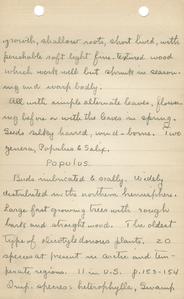 growth, shallow roots, short lived, with
perishable soft light fine-textured wood
which works well but shrinks in season-
ing and warps badly.
All with simple alternate leaves, flower-
ing before or with the leaves in spring.
Seeds silky haired, wind-borne. Two
genera, Populus & Salix.
Populus.
Buds imbricated & scaly. Widely
distributed in the northern hemisphere.
Large fast growing trees with rough
bark and straight wood. The oldest
type of dicotyledonous plants. 20
species at present in arctic and tem-
perate regions. 11 in U.S. p. 153-154
Imp. species: heterophylla, Swamp